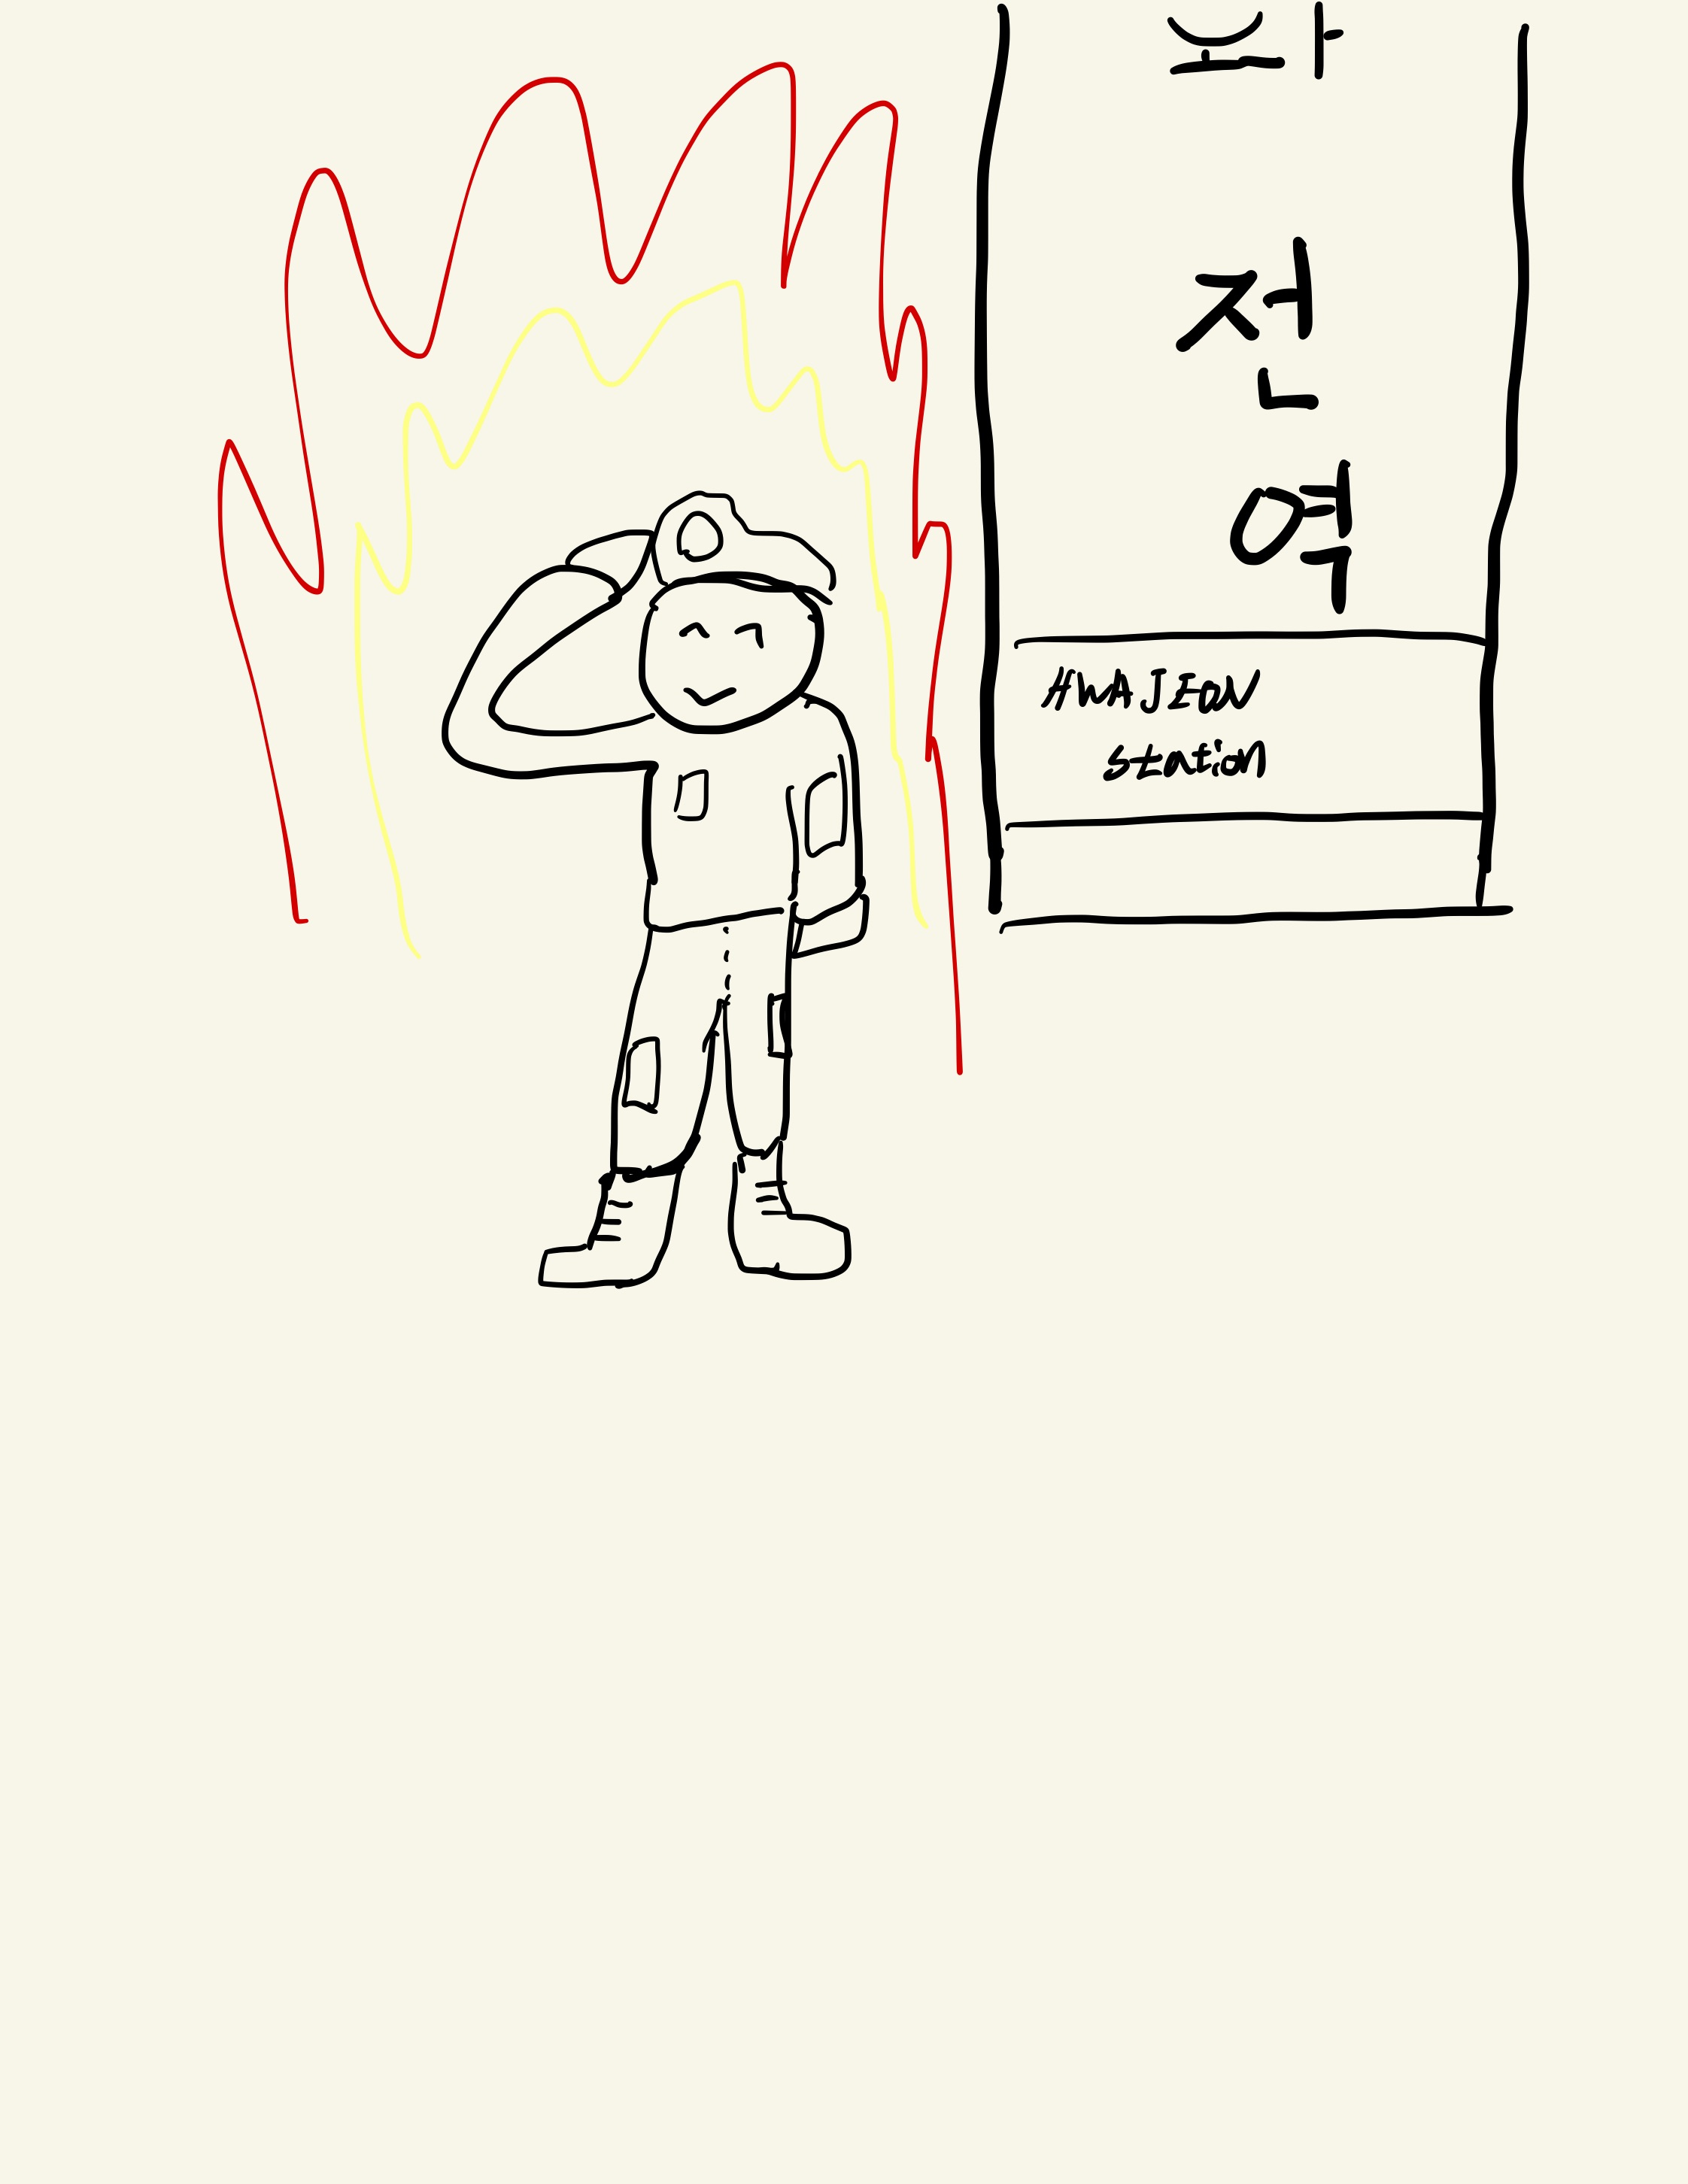 화전역
HWAJEON
station